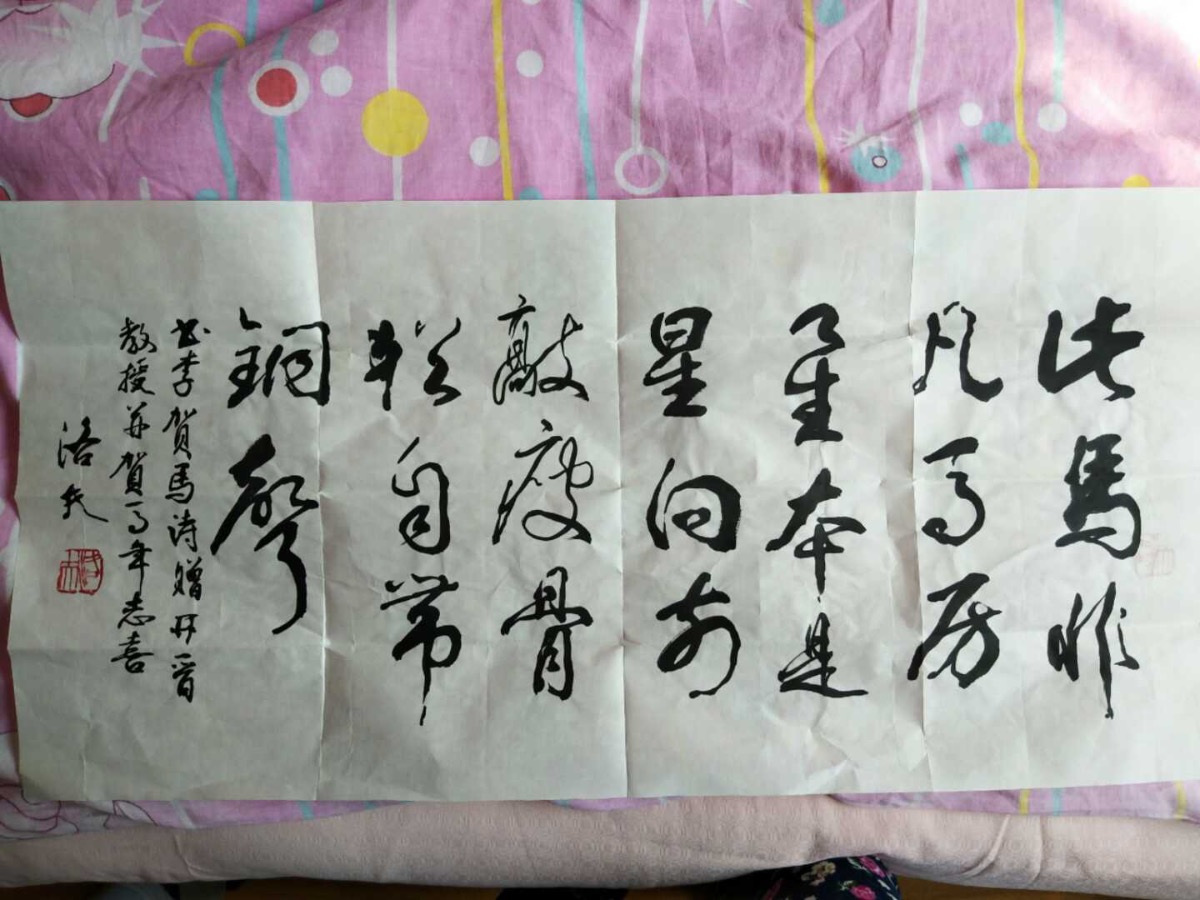 此馬非
凡馬房
星本是
星向前
敲瘦骨
猶自帶
銅聲
书李賀馬诗贈开晋
教授并賀馬年志喜
洛夫